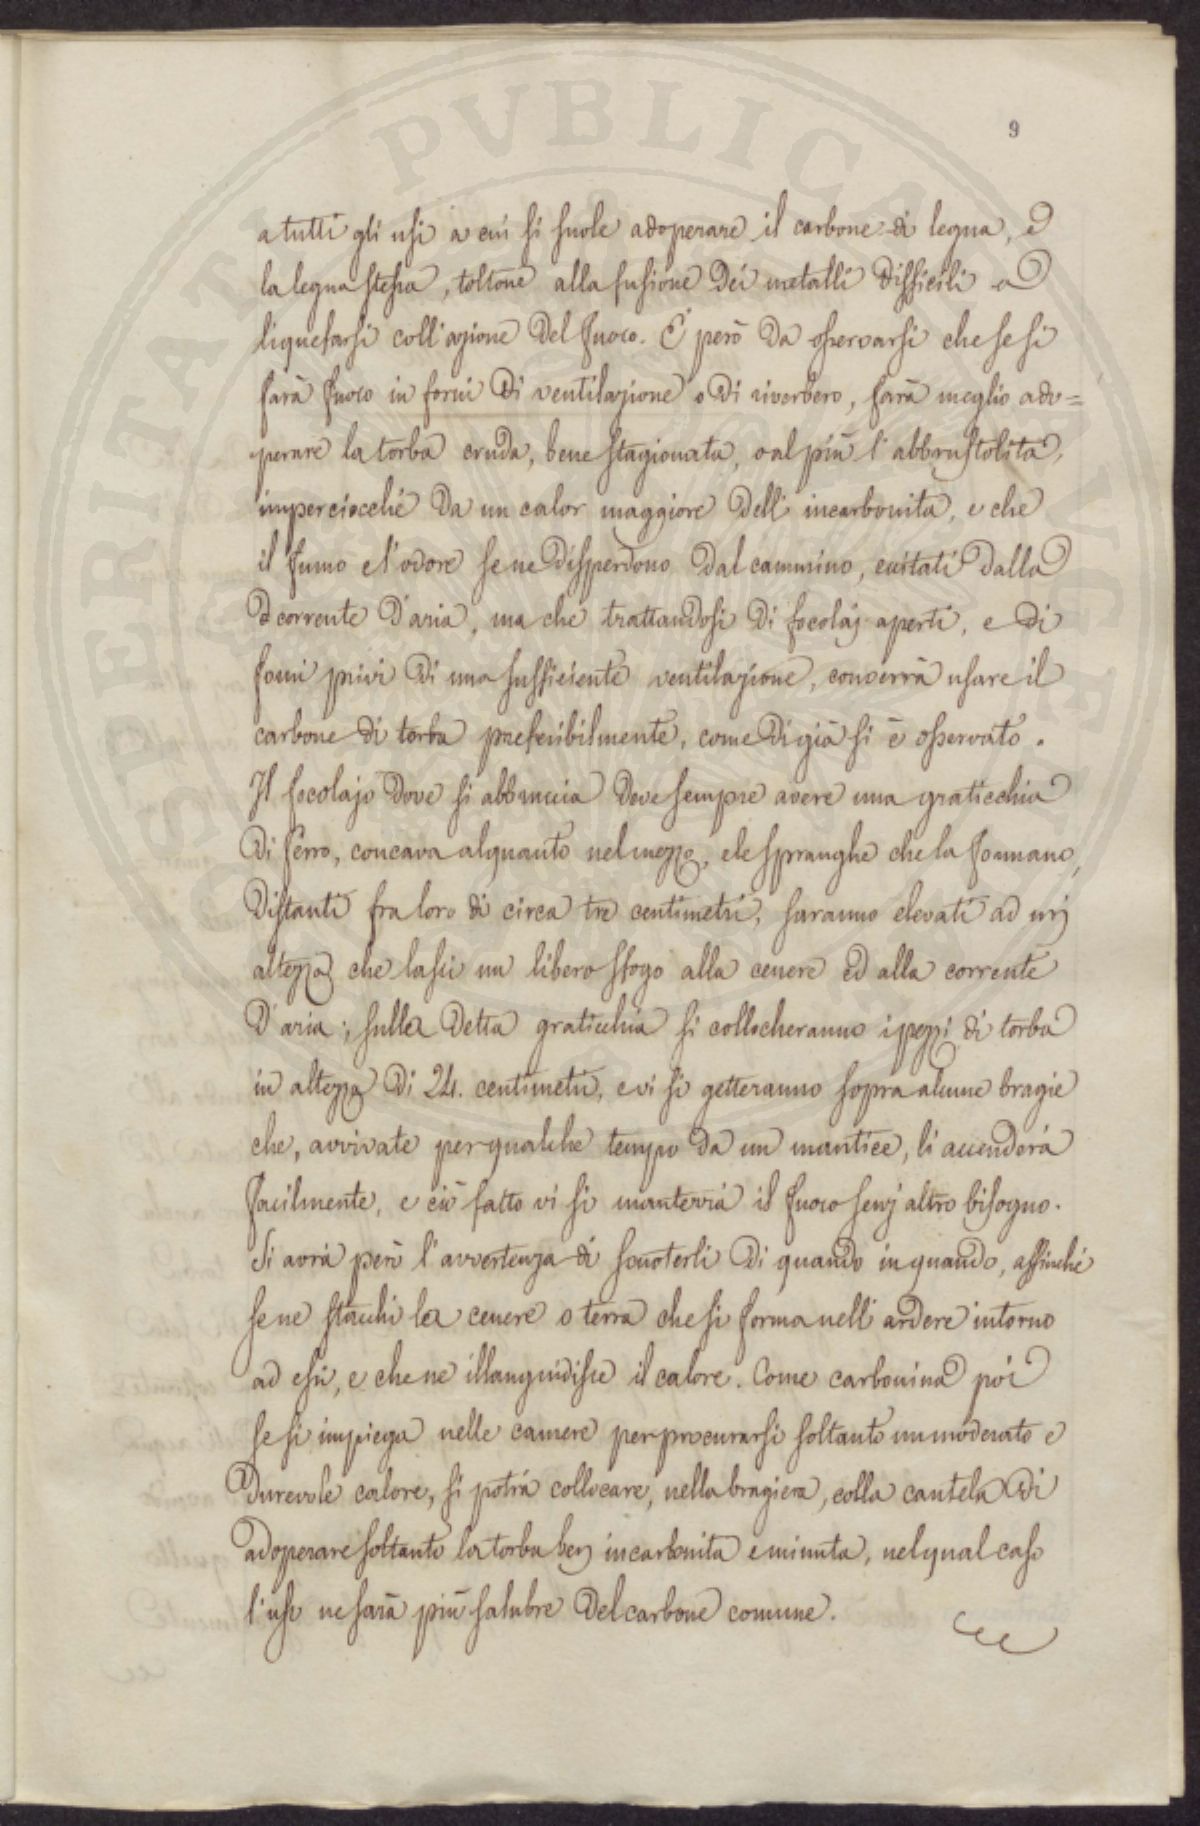 9
a tutti gli usi a cui si suole adoperare il carbone di legna, e
la legna stessa, toltone alla fusione dei metalli difficili a
liquefarsi coll'azione del fuoco. È però da osservarsi che se si
farà fuoco in forni di ventilazione o di riverbero, sarà meglio ado=
perare la torba cruda, bene stagionata, o al più l'abbrustolita,
imperciocché da un calor maggiore dell'incarbonita, e che
il fumo e l'odore se ne disperdono dal cammino, eccitati dalla
corrente d'aria, ma che trattandosi di focolaj aperti, e di
forni privi di una sufficiente ventilazione, converrà usare il
carbone di torba preferibilmente, come di già si è osservato.
Il focolajo dove si abbruccia deve sempre avere una graticchia
di ferro, concava alquanto nel mezzo, e le spranghe che la formano,
distanti fra loro di circa tre centimetri, saranno elevati ad un
altezza che lasci un libero sfogo alla cenere ed alla corrente
d'aria; sulla detta graticchia si collocheranno i pezzi di torba
in altezza di 24. centimetri, e vi si getteranno sopra alcune bragie
che, avvivate per qualche tempo da un mantice, li accenderà
facilmente, e ciò fatto vi si manterrà il fuoco senz'altro bisogno.
Si avrà però l'avvertenza di scuoterli di quando in quando, affinché
se ne stacchi la cenere o terra che si forma nell'ardere intorno
ad essi, e che ne illanguidisce il calore. Come carbonina poi
se si impiega nelle camere per procurarsi soltanto un moderato e
durevole calore, si potrà collocare, nella bragiera, colla cautela di
adoperare soltanto la torba ben incarbonita e minuta, nel qual caso
l'uso ne sarà più salubre del carbone comune.
PVBLICAE